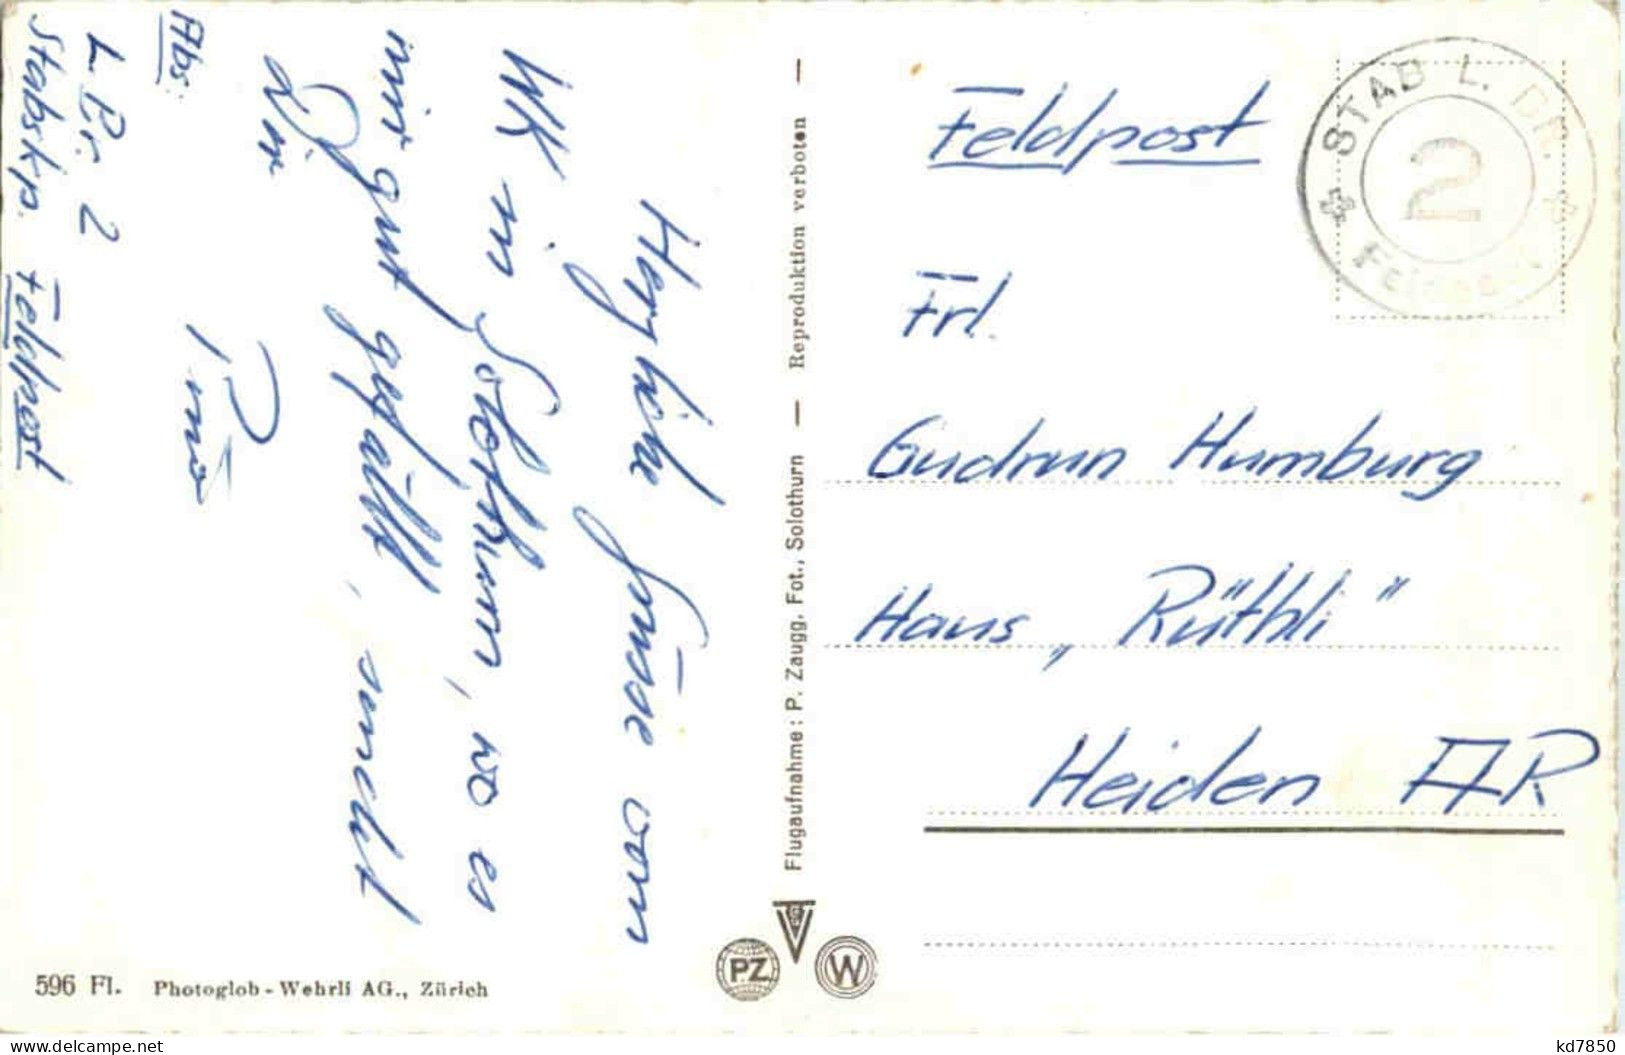 Abs:
L Br. 2
Stabskp. Feldpost
Herzliche Grüsse vom
WK in Solothurn, wo es
mir gut gefällt, sendet
Dir
596 Fl. Photoglob-Wehrli AG., Zürich
Flugaufnahme: P. Zaugg, Fot., Solothurn — Reproduktion verboten —
PZ
W
STAB L. DR.
2
Feldpost
Frl.
Gudrun Humburg
Haus „Rüthli"
Heiden AR
delcampe.net
kd7850